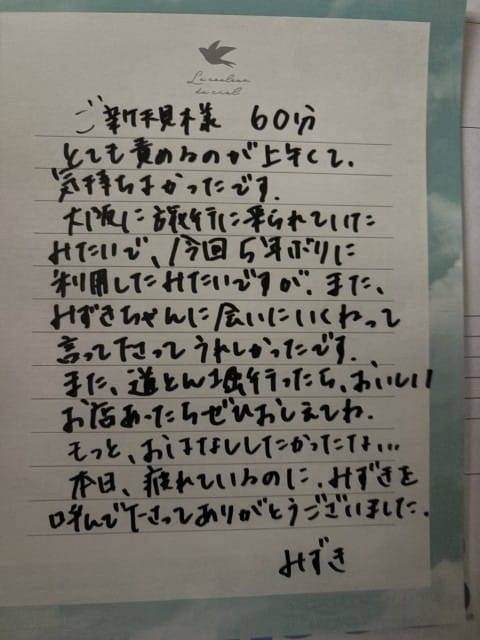 La couleur
du ciel
ご新規様 60分
とても責めるのが上手くて、
気持ちよかったです。
大阪に旅行に来られていた
みたいで、今回5年ぶりに
利用したみたいですが、また、
みずきちゃんに会いにいくねって
言って下さってうれしかったです。
また、道とん堀行ったら、おいしい
お店あったらぜひおしえてね。
もっと、おはなししたかったな...
本日、疲れているのに、みずきを
呼んで下さってありがとうございました。
みずき